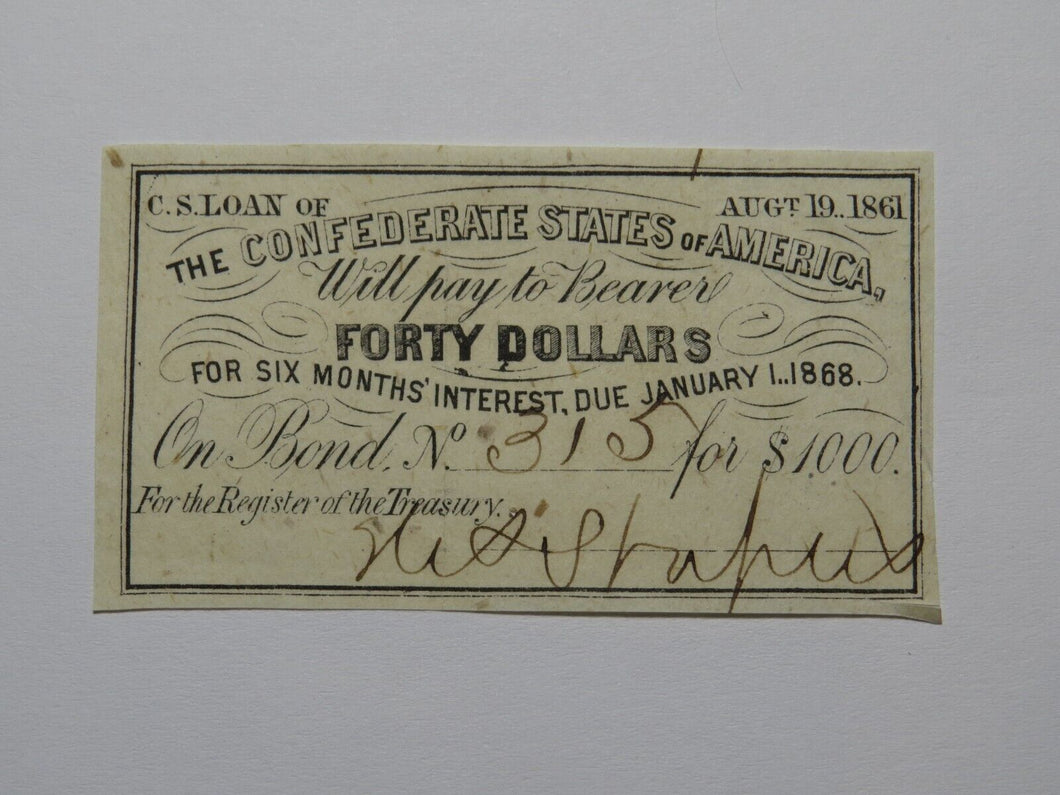 C.S. LOAN OF AUGT. 19..1861
THE CONFEDERATE STATES OF AMERICA,
Will pay to Bearer
FORTY DOLLARS
FOR SIX MONTHS' INTEREST, DUE JANUARY 1..1868.
On Bond, No. 315 for $1,000.
For the Register of the Treasury.